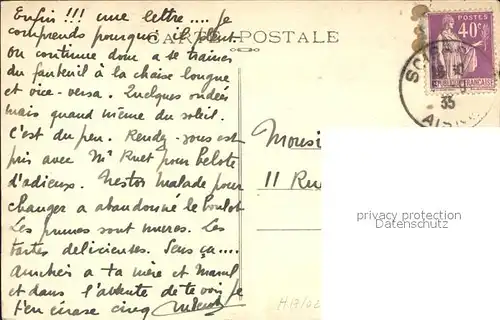 CARTE POSTALE
POSTES
40c
RÉPUBLIQUE FRANÇAISE
35
Enfin !!! une lettre .... je
comprends pourquoi il pleut.
On continue donc a se trainer
du fauteuil à la chaise longue
et vice-versa. Quelques ondées
mais quand même du soleil.
C'est du peu. Rendez-vous est
pris avec Mr Ruet pour belote
d'adieux. Nestor Malade pour
changer a abandonné le boulot
Les prunes sont mures. Les
tartes délicieuses. Sens ça....
Amitiés a ta mère et
et dans l'attente de te voir je
t'en écrase cinq
Monsi
11 Ru
privacy protection
Datenschutz